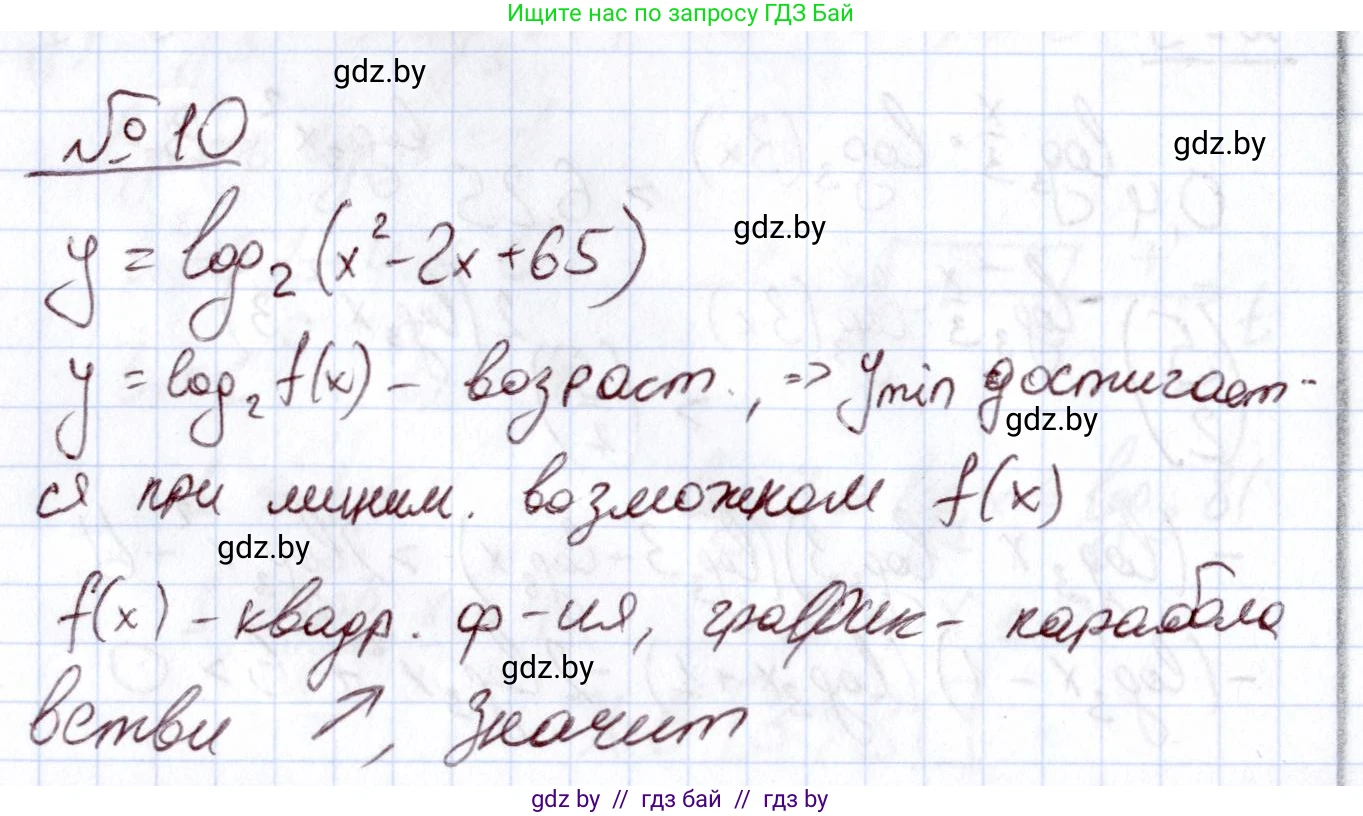 Ищите нас по запросу ГДЗ Бай
gdz.by
№ 10
gdz.by
gdz.by
y = log₂(x² - 2x + 65)
y = log₂ f(x) - возраст., => ymin достигает-
gdz.by
ся при миним. возможном f(x)
gdz.by
f(x) - квадр. ф-ия, график - парабола
gdz.by
встви ↗, значит
gdz by // гдз бай // гдз by